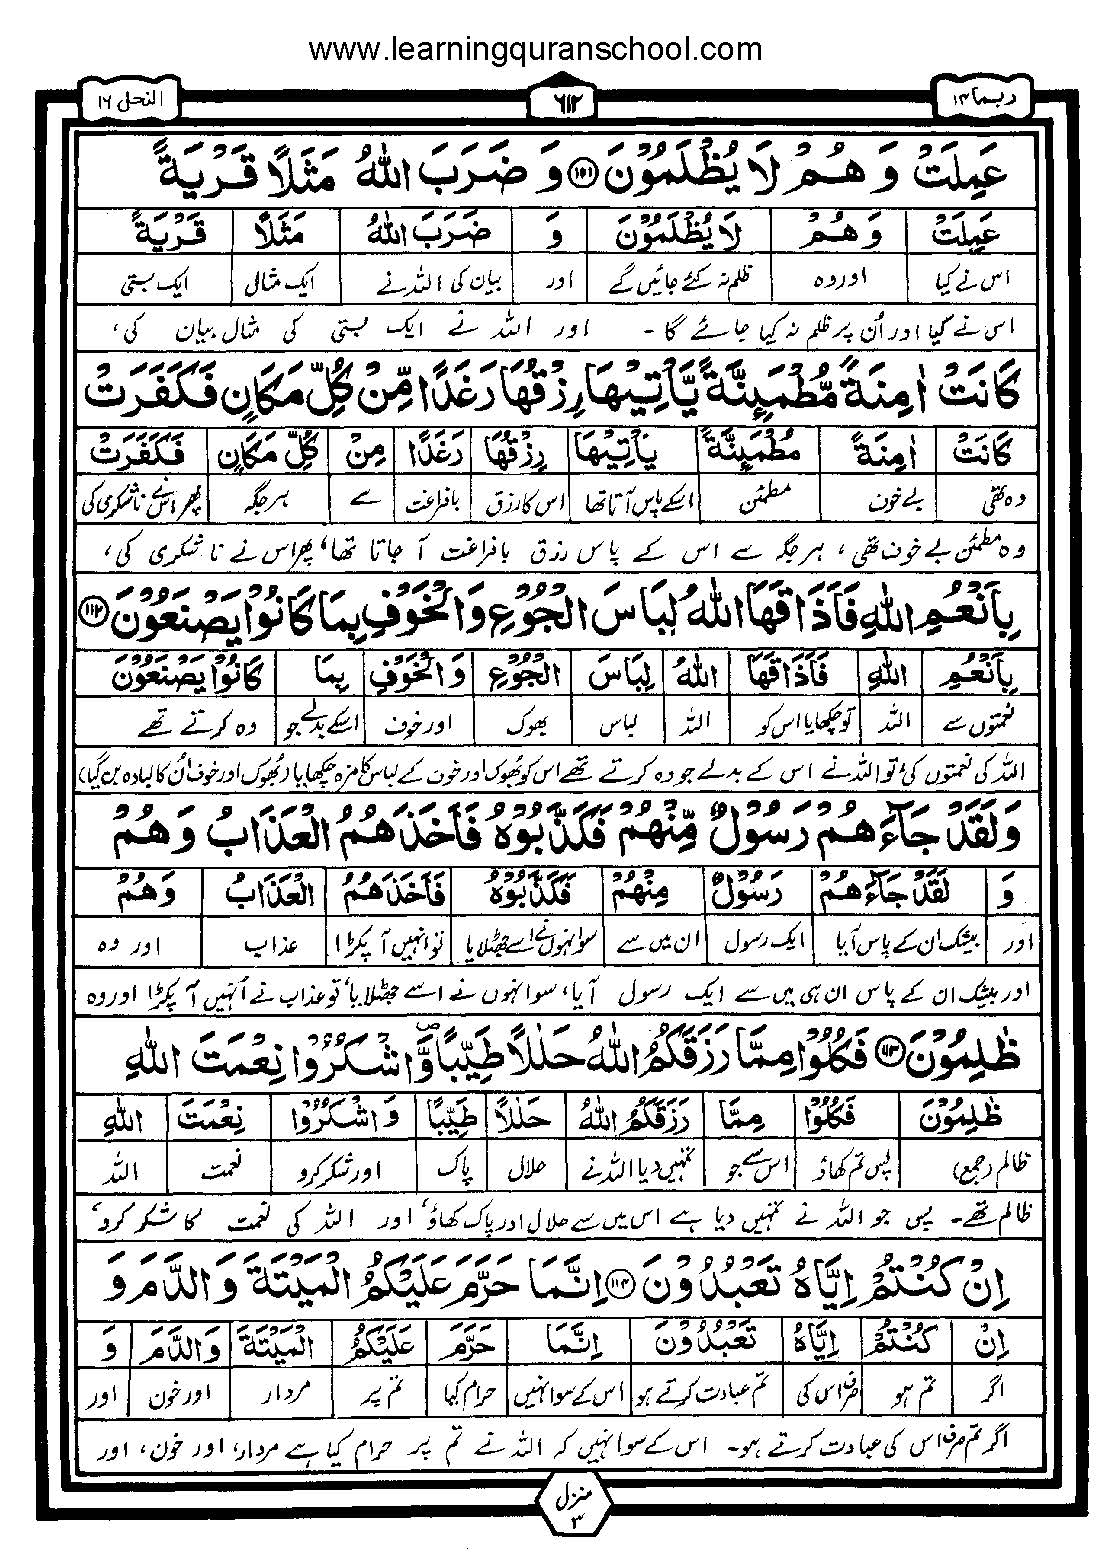 www.learningquranschool.com
ربما ۱۴ ۶۱۲ النحل ۱۶
عَمِلَتْ وَهُمْ لَا يُظْلَمُوْنَ ۝۱۱۱ وَ ضَرَبَ اللّٰهُ مَثَلًا قَرْيَةً
عَمِلَتْ وَهُمْ لَا يُظْلَمُوْنَ وَ ضَرَبَ اللّٰهُ مَثَلًا قَرْيَةً
اس نے کیا اور وہ ظلم نہ کئے جائیں گے اور بیان کی اللہ نے ایک مثالی ایک بستی
اس نے کیا اور اُن پر ظلم نہ کیا جائے گا ۔ اور اللہ نے ایک بستی کی مثال بیان کی،
كَانَتْ اٰمِنَةً مُّطْمَىِٕنَّةً يَّاْتِيْهَا رِزْقُهَا رَغَدًا مِّنْ كُلِّ مَكَانٍ فَكَفَرَتْ
كَانَتْ اٰمِنَةً مُطْمَىِٕنَّةً يَاْتِيْهَا رِزْقُهَا رَغَدًا مِنْ كُلِّ مَكَانٍ فَكَفَرَتْ
وہ تھی بے خوف مطمئن اسکے پاس آتا تھا اس کا رزق بافراغت سے ہر جگہ پھر اس نے ناشکری کی
وہ مطمئن بے خوف تھی، ہر جگہ سے اس کے پاس رزق بافراغت آ جاتا تھا، پھر اس نے ناشکری کی،
بِاَنْعُمِ اللّٰهِ فَاَذَاقَهَا اللّٰهُ لِبَاسَ الْجُوْعِ وَالْخَوْفِ بِمَا كَانُوْا يَصْنَعُوْنَ ۝۱۱۲
بِاَنْعُمِ اللّٰهِ فَاَذَاقَهَا اللّٰهُ لِبَاسَ الْجُوْعِ وَالْخَوْفِ بِمَا كَانُوْا يَصْنَعُوْنَ
نعمتوں سے اللہ تو چکھایا اس کو اللہ لباس بھوک اور خوف اسکے بدلے جو وہ کرتے تھے
اللہ کی نعمتوں کی، تو اللہ نے اس کے بدلے جو وہ کرتے تھے اس کو بھوک اور خوف کے لباس کا مزہ چکھایا (بھوک اور خوف اُن کا لبادہ بن گیا)
وَلَقَدْ جَآءَهُمْ رَسُوْلٌ مِّنْهُمْ فَكَذَّبُوْهُ فَاَخَذَهُمُ الْعَذَابُ وَهُمْ
وَ لَقَدْ جَآءَهُمْ رَسُوْلٌ مِنْهُمْ فَكَذَّبُوْهُ فَاَخَذَهُمُ الْعَذَابُ وَهُمْ
اور بیشک ان کے پاس آیا ایک رسول ان میں سے سو انہوں نے اسے جھٹلایا تو انہیں آ پکڑا عذاب اور وہ
اور بیشک ان کے پاس ان ہی میں سے ایک رسول آیا، سو انہوں نے اسے جھٹلایا، تو عذاب نے اُنہیں آ پکڑا اور وہ
ظٰلِمُوْنَ ۝۱۱۳ فَكُلُوْا مِمَّا رَزَقَكُمُ اللّٰهُ حَلٰلًا طَيِّبًا ۪ وَّاشْكُرُوْا نِعْمَتَ اللّٰهِ
ظٰلِمُوْنَ فَكُلُوْا مِمَّا رَزَقَكُمُ اللّٰهُ حَلٰلًا طَيِّبًا وَاشْكُرُوْا نِعْمَتَ اللّٰهِ
ظالم (جمع) پس تم کھاؤ اس سے جو تمہیں دیا اللہ نے حلال پاک اور شکر کرو نعمت اللہ
ظالم تھے۔ پس جو اللہ نے تمہیں دیا ہے اس میں سے حلال اور پاک کھاؤ، اور اللہ کی نعمت کا شکر کرو،
اِنْ كُنْتُمْ اِيَّاهُ تَعْبُدُوْنَ ۝۱۱۴ اِنَّمَا حَرَّمَ عَلَيْكُمُ الْمَيْتَةَ وَالدَّمَ وَ
اِنْ كُنْتُمْ اِيَّاهُ تَعْبُدُوْنَ اِنَّمَا حَرَّمَ عَلَيْكُمُ الْمَيْتَةَ وَالدَّمَ وَ
اگر تم ہو صرف اس کی تم عبادت کرتے ہو اس کے سوا نہیں حرام کیا تم پر مردار اور خون اور
اگر تم صرف اس کی عبادت کرتے ہو۔ اس کے سوا نہیں کہ اللہ نے تم پر حرام کیا ہے مردار، اور خون، اور
منزل ۳